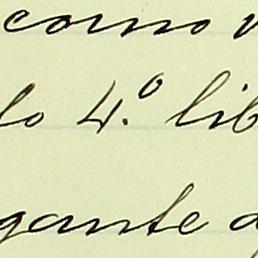 como v
lo 4.º lib
gante d